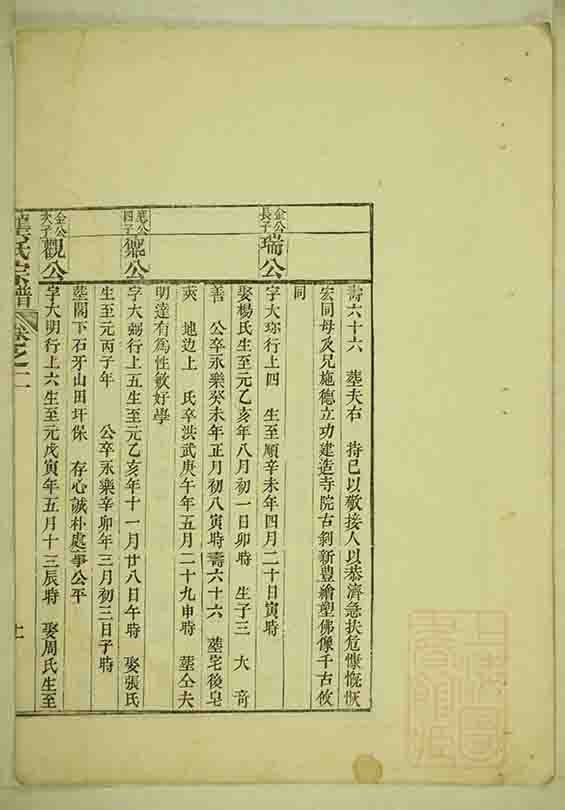 壽六十六 葬夫右 持己以敬接人以恭濟急扶危慷慨恢
宏同母及兄施德立功建造寺院古刹新豐繪塑佛像千古攸
同
金公長子
瑞公
字大珎行上四 生至順辛未年四月二十日寅時
娶楊氏生至元乙亥年八月初一日卯時 生子三 大奇
善 公卒永樂癸未年正月初八寅時壽六十六 葬宅後皂
夾 地边上 氏卒洪武庚午年五月二十九申時 葬仝夫
明達有為性敏好學
四子
公
字大 行上五生至元乙亥年十一月廿八日午時 娶張氏
生至元丙子年 公卒永樂辛卯年三月初三日子時
葬閣下石牙山田圩保 存心誠朴處事公平
金公次子
觀公
字大明行上六生至元戊寅年五月十三辰時 娶周氏生至
氏宗譜 卷之二